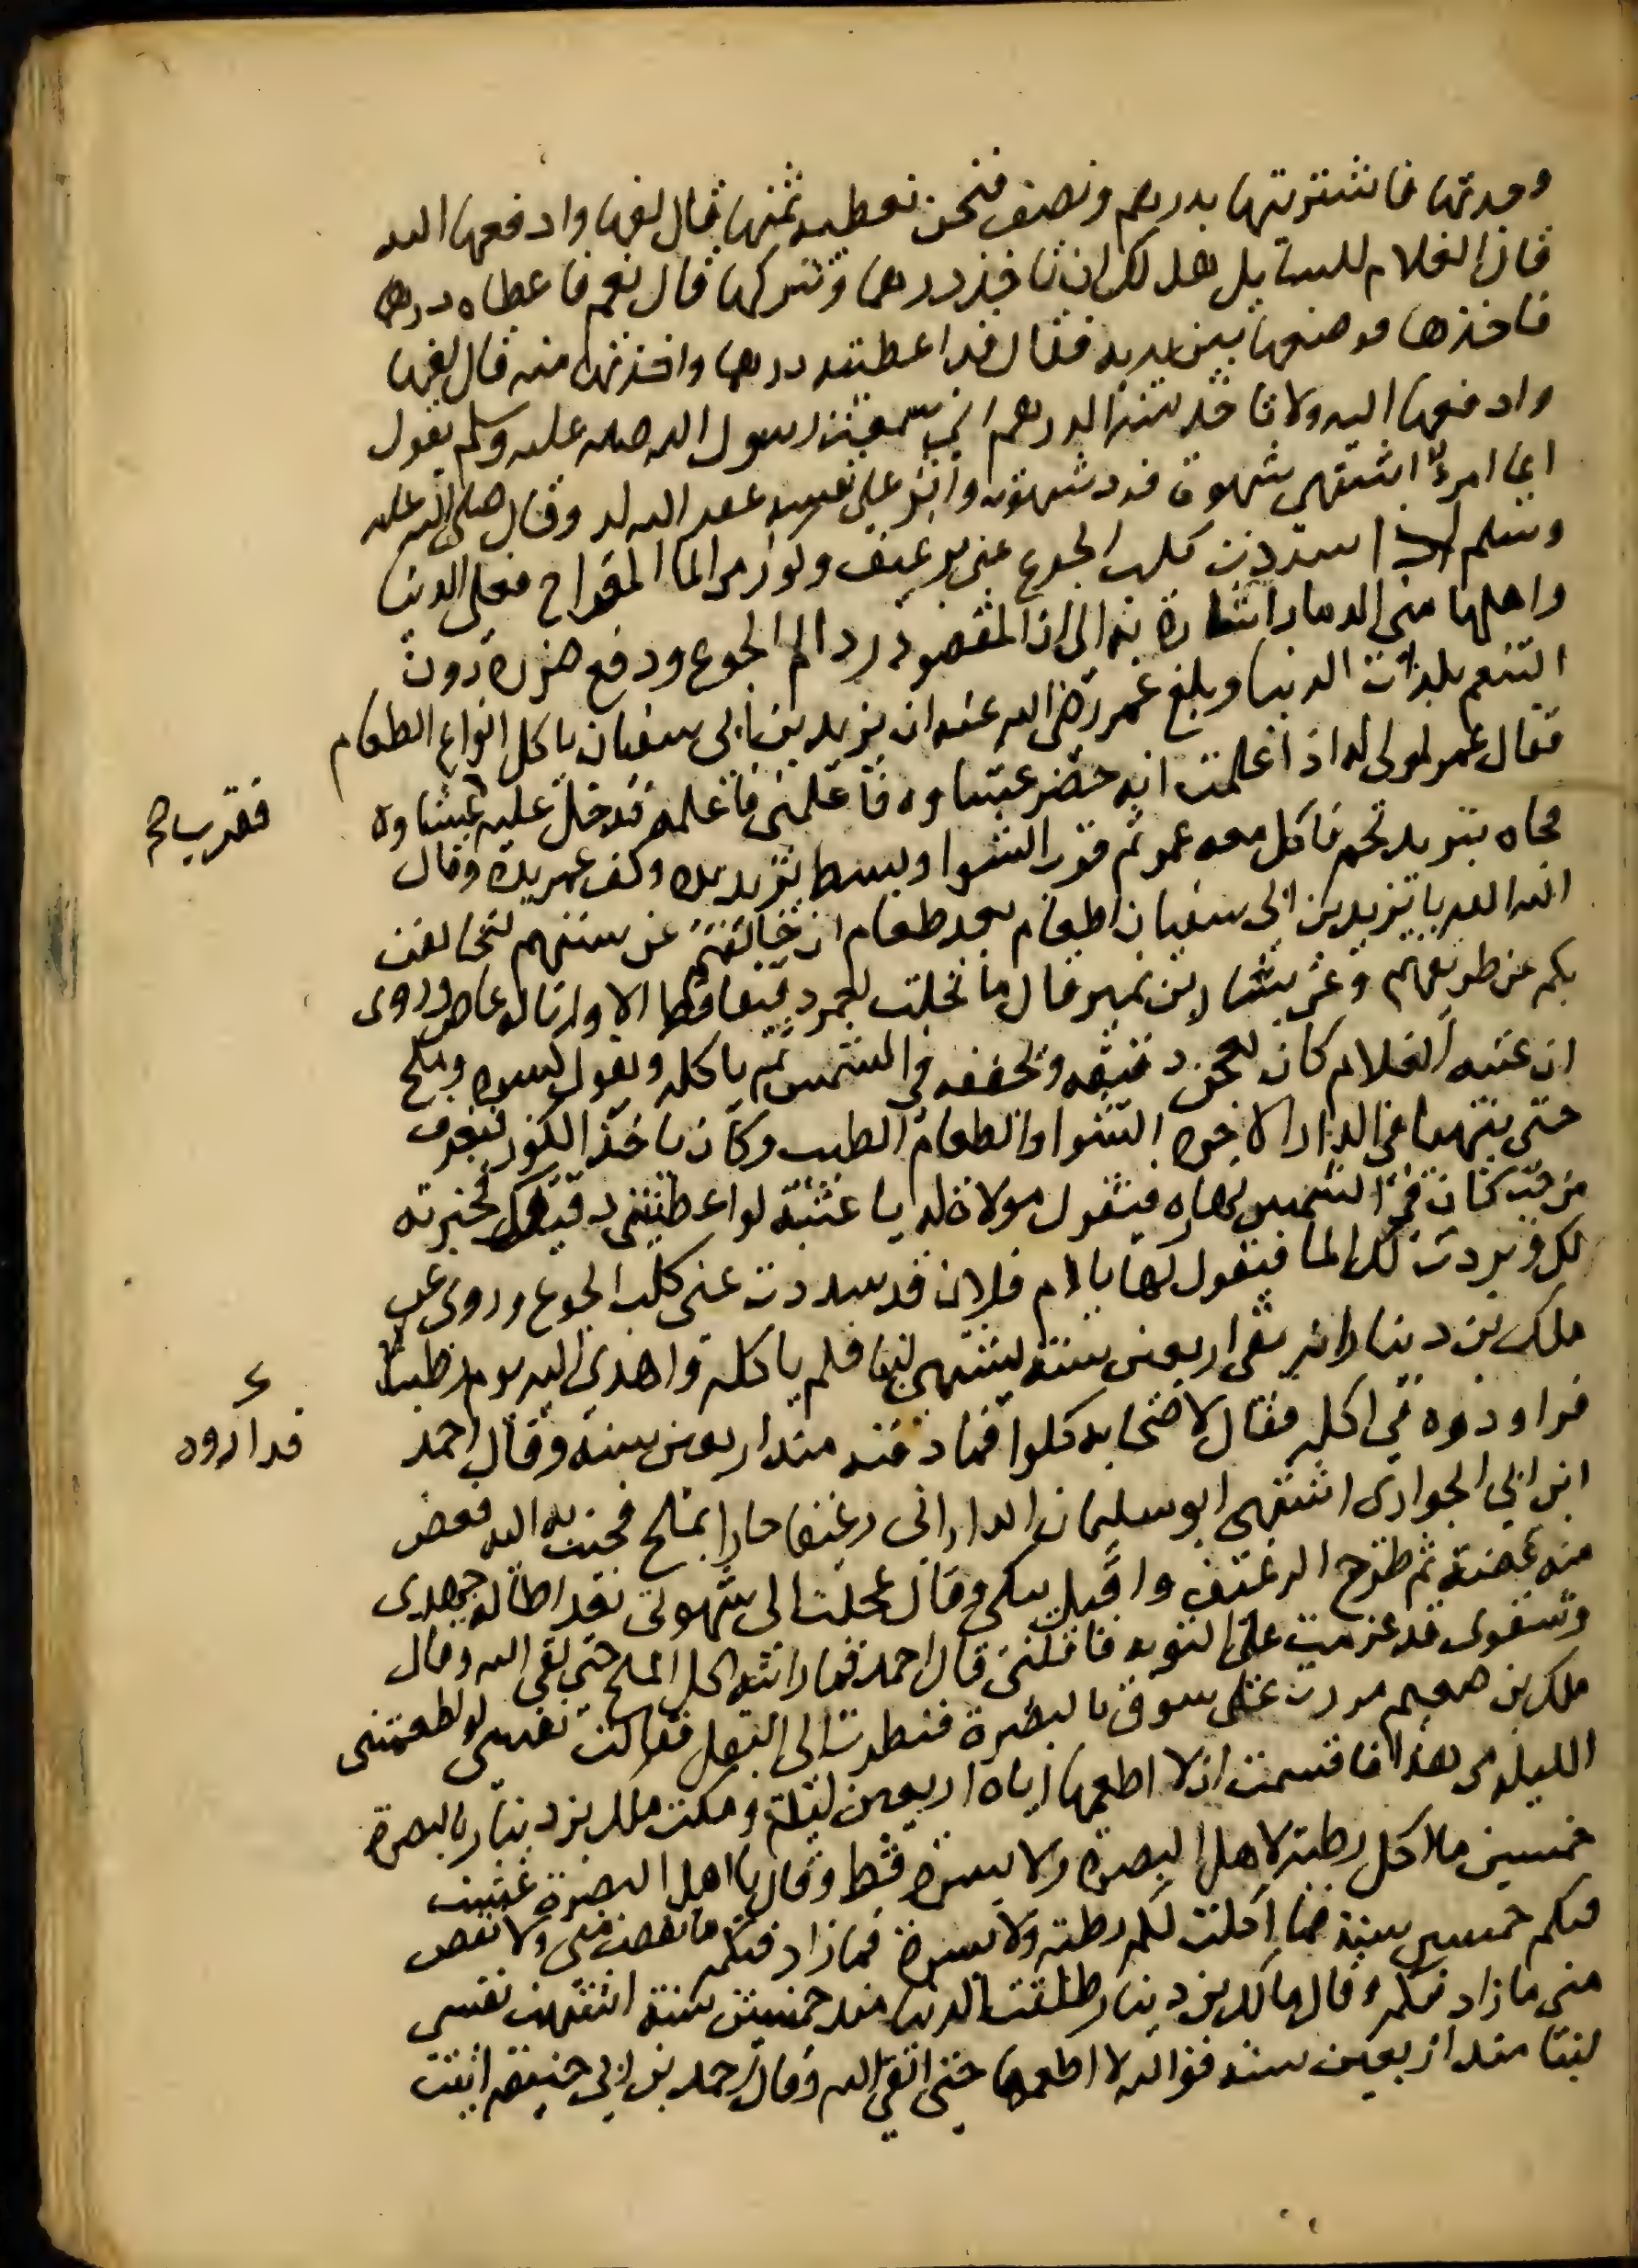 وجدتها فاشتريتها بدرهم ونصف فنحن نعطيه ثمنها قال لفها وادفعها اليه
فقال الغلام للسايل هل لك ان تاخذ درهما وتتركها قال نعم فاعطاه درهما
فاخذها فوضعها بين يديه فقال قد اعطيته درهما واخذتها منه قال لفها
وادفعها اليه ولا تاخذ منه الدرهم اني سمعت رسول الله صلى الله عليه وسلم يقول
ايما امرئ اشتهى شهوة فرد شهوته واثر على نفسه غفر الله له وقال صلى الله عليه
وسلم اذا سددت كلب الجوع عني برغيف وكوز من الما القراح فعلى الدنيا
واهلها مني الدمار اشارة به الى ان المقصود رد الم الجوع ودفع ضرره دون
التنعم بلذات الدنيا وبلغ عمر رضي الله عنه ان يزيد بن ابي سفيان ياكل انواع الطعام
فقال عمر لمولى له اذا علمت انه حضر عشاوه فاعلمني فاعلمه فدخل عليه فقرب عشاوه
فجاه بثريد لحم فاكل معه عمر ثم قرب الشوا وبسط يزيد يده وكف عمر يده وقال
الله الله يا يزيد بن ابي سفيان اطعام بعد طعام ان خالفتم عن سنتهم لتخالفن
بكم عن طريقهم وعن يشار بن نمير قال ما نخلت لعمر دقيقا قط الا وانا له عاص وروى
ان عتبة الغلام كان يعجن دقيقه ويجففه في الشمس ثم ياكله ويقول كسره وملح
حتى يتهيا في الدار الاخره الشوا والطعام الطيب وكان ياخذ الكوز فيغرف
من حب كان في الشمس نهاره فيقول مولاة له يا عتبة لو اعطيتني دقيقك لخبزته
لك وبردت لك الما فيقول لها يا ام فلان قد سددت عني كلب الجوع وروى عن
ملك بن دينار انه بقي اربعين سنة يشتهي لبنا فلم ياكله واهدى اليه يوم رطب
فراودوه في اكله فقال لاصحابه كلوا فما ذقته منذ اربعين سنة وقال احمد
ابن ابي الجوارى اشتهى ابو سليمان الداراني رغيفا حارا بملح فجيت به اليه فعض
منه عضة ثم طرح الرغيف واقبل يبكي وقال عجلت الى شهوتي بعد اطالة جهدى
وشقوى قد عزمت على التوبه فاقلني قال احمد فما رايته اكل الملح حتى لقي الله وقال
ملك بن ضيغم مررت على سوق بالبصرة فنظرت الى البقل فقالت نفسي لو اطعمتني
الليله من هذا فاقسمت ان لا اطعمها اياه اربعين ليلة ومكث ملك بن دينار بالبصرة
خمسين ما اكل رطبة لاهل البصرة ولا بسرة قط وقال يا اهل البصرة عشت
فيكم خمسين سنة فما اكلت لكم رطبة ولا بسرة فما زاد فيكم ما نقص مني ولا نقص
مني ما زاد فيكم وقال مالك بن دينار طلقت الدنيا منذ خمسين سنة اشتهت نفسي
لبنا منذ اربعين سنة فوالله لا اطعمها حتى القى الله وقال حماد بن ابي حنيفة اتيت
فقرب